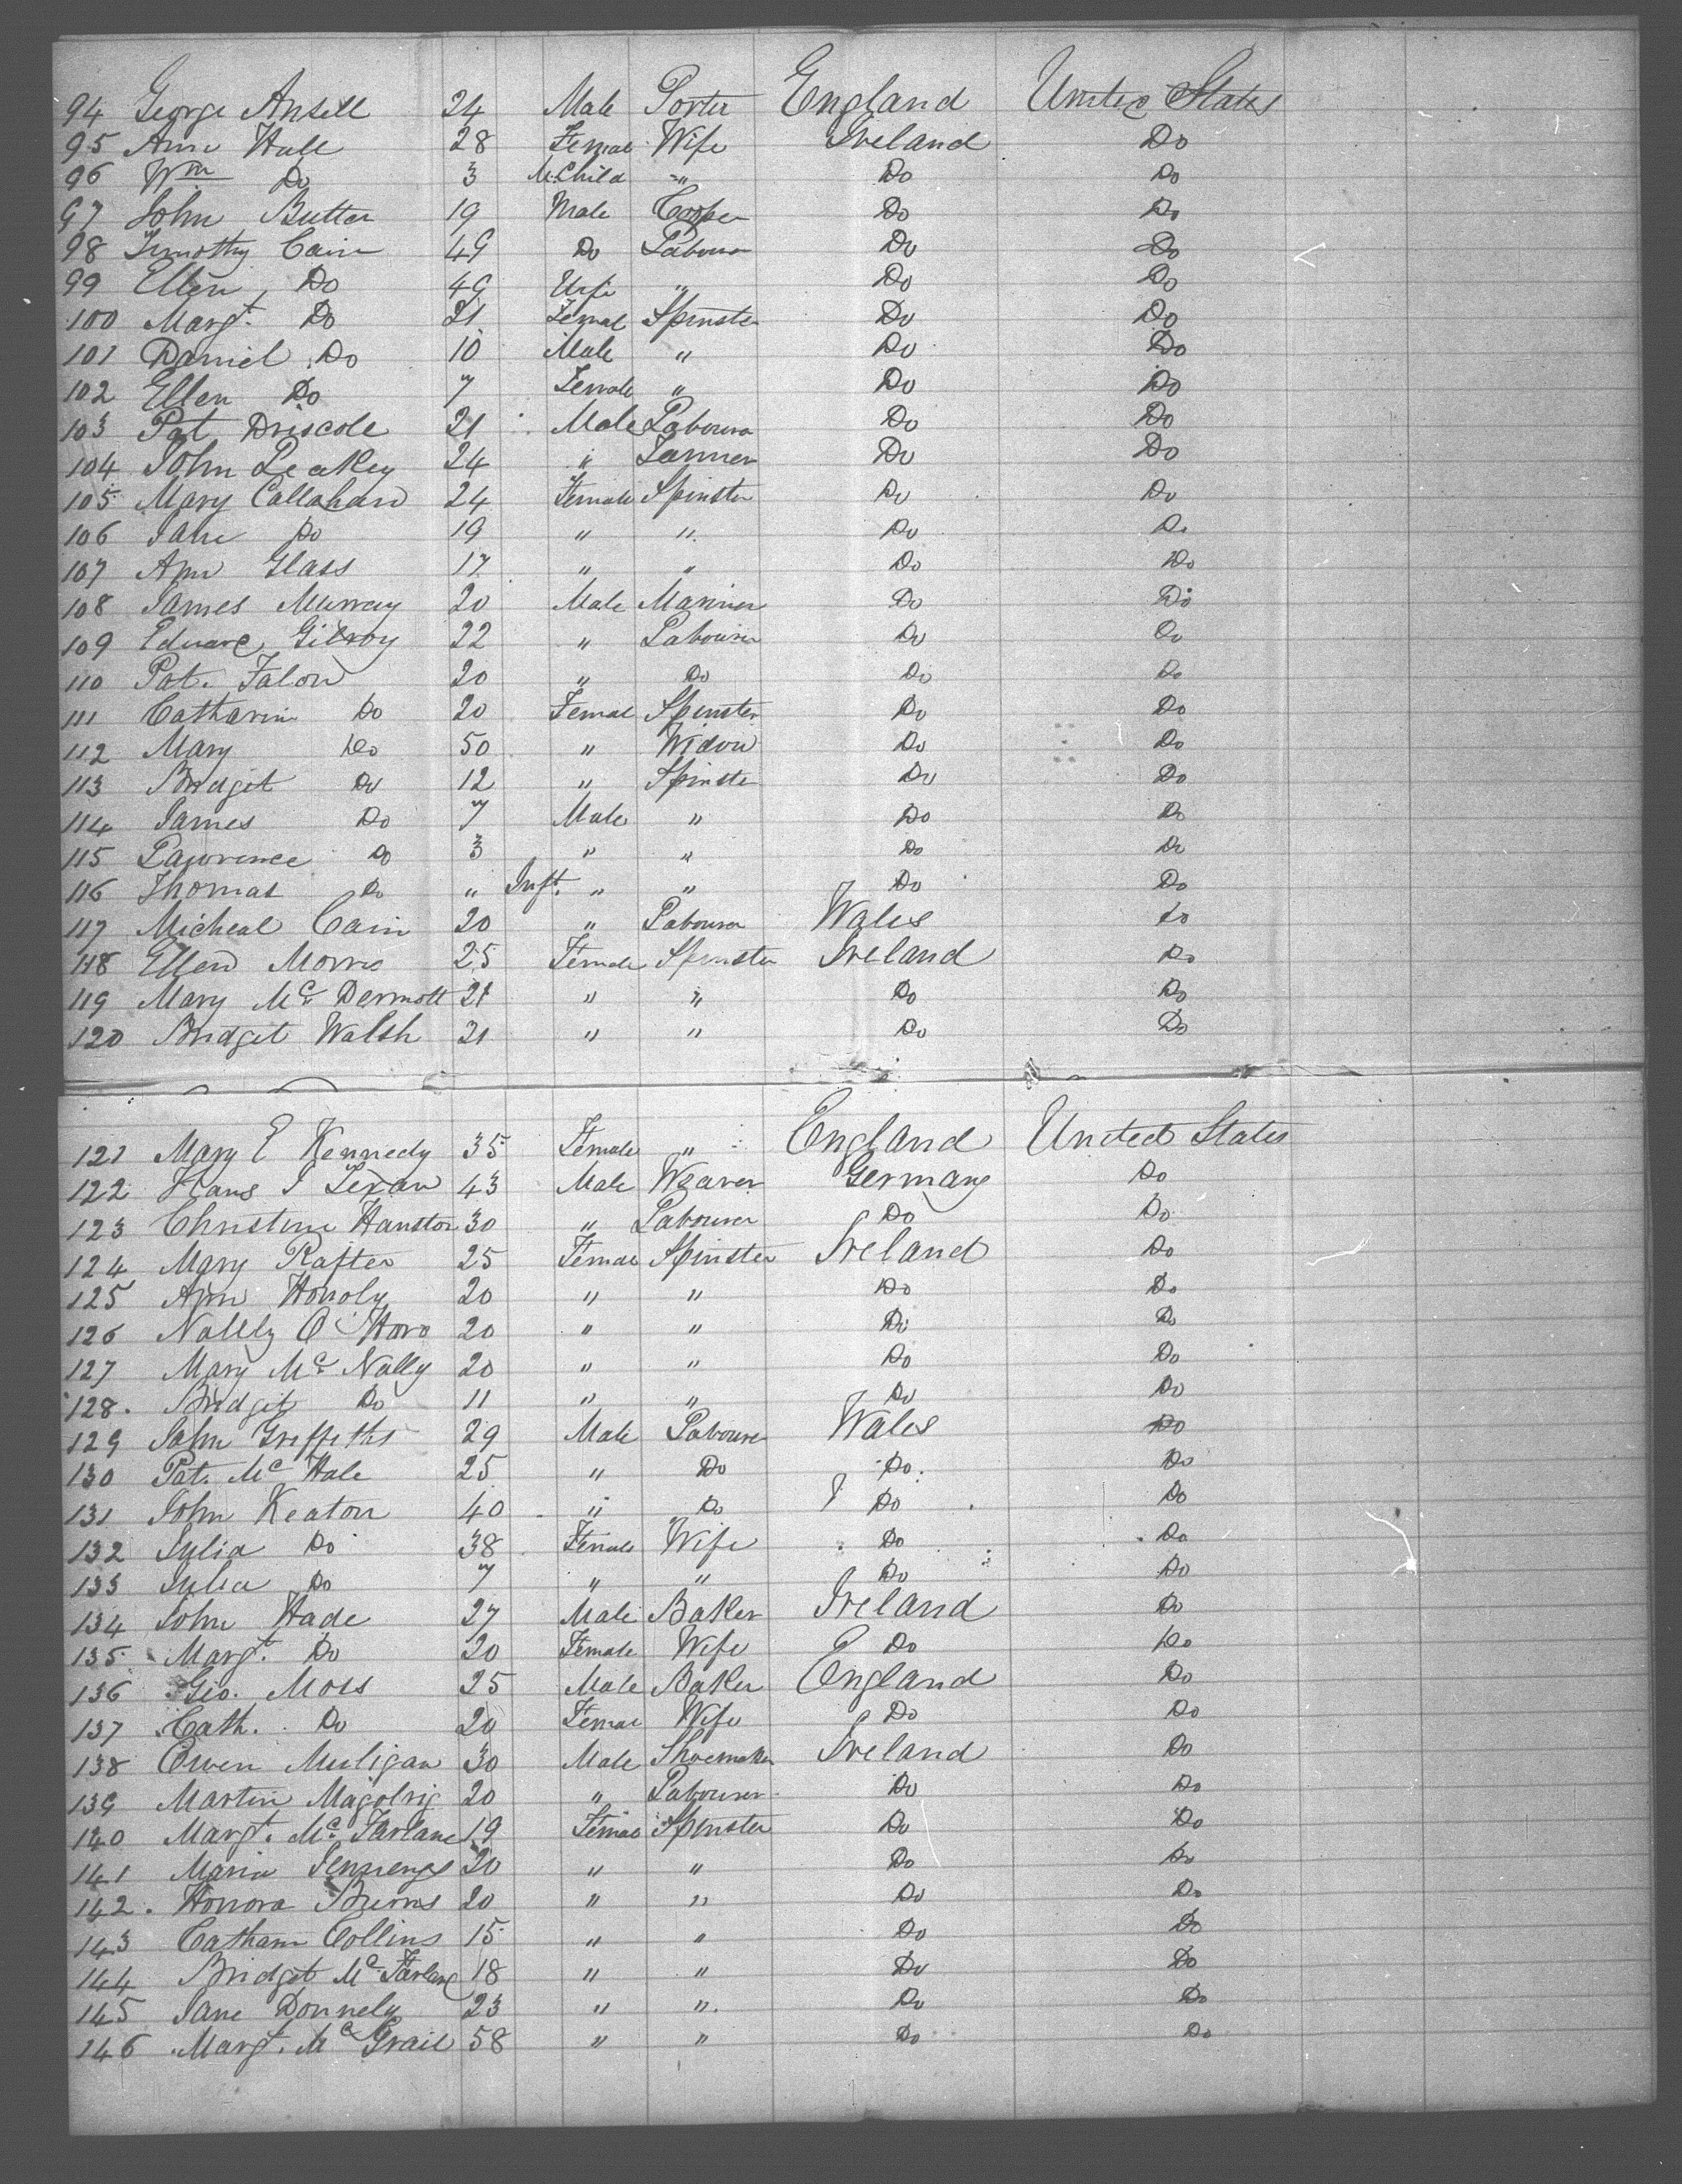 94 George Ansell 24 Male Porter England United States
95 Ann Hall 28 Female Wife Ireland Do
96 Wm Do 3 M. Child " Do Do
97 John Butter 19 Male Cooper Do Do
98 Timothy Cain 49 Do Labourer Do Do
99 Ellen Do 49 Wife " Do Do
100 Margt. Do 21 Female Spinster Do Do
101 Daniel Do 10 Male " Do Do
102 Ellen Do 7 Female " Do Do
103 Pat Driscole 21 Male Labourer Do Do
104 John Leakey 24 " Do Do
105 Mary Callahan 24 Female Spinster Do Do
106 Jane Do 19 " " Do Do
107 Ann Glass 17 " " Do Do
108 James Murray 20 Male Mariner Do Do
109 Edward Gilroy 22 " Labourer Do Do
110 Pat. Falon 20 " Do Do Do
111 Catharin Do 20 Female Spinster Do Do
112 Mary Do 50 " Widow Do Do
113 Bridget Do 12 " Spinster Do Do
114 James Do 7 Male " Do Do
115 Lawrence Do 3 " " Do Do
116 Thomas Do " Inft. " " Do Do
117 Micheal Cain 20 " Labourer Wales Do
118 Ellen Morris 25 Female Spinster Ireland Do
119 Mary Mc Dermott 21 " " Do Do
120 Bridget Walsh 21 " " Do Do
121 Mary E Kennedy 35 Female " England United States
122 Hans J 43 Male Weaver Germany Do
123 Christine Hanston 30 " Labourer Do Do
124 Mary Rafter 25 Female Spinster Ireland Do
125 Ann Honoly 20 " " Do Do
126 Nablly O'Haro 20 " " Do Do
127 Mary Mc Nally 20 " " Do Do
128 Bridget Do 11 " " Do Do
129 John Griffiths 29 Male Labourer Wales Do
130 Pat. Mc Hale 25 " Do Do Do
131 John Keaton 40 " Do Do Do
132 Julia Do 38 Female Wife Do Do
133 Julia Do 7 " " Do Do
134 John Wade 27 Male Baker Ireland Do
135 Margt. Do 20 Female Wife Do Do
136 Geo. Moss 25 Male Baker England Do
137 Cath. Do 20 Female Wife Do Do
138 Owen Muligan 30 Male Shoemaker Ireland Do
139 Martin Magolrig 20 " Labourer Do Do
140 Margt. Mc Farlane 19 Female Spinster Do Do
141 Maria Jennengs 20 " " Do Do
142 Honora Burns 20 " " Do Do
143 Catharin Collins 15 " " Do Do
144 Bridget Mc Farlane 18 " " Do Do
145 Jane Donnely 23 " " Do Do
146 Margt. Mc Grail 58 " " Do Do